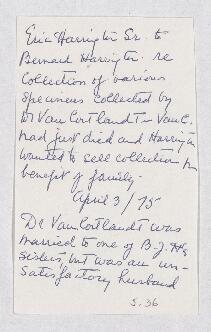 Eric Harrington Sr. to
Bernard Harrington: re
Collection of various
specimens collected by
Dr Van Cortlandt – Van C.
had just died and Harrington
wanted to sell collection for
benefit of family.
April 3/75
Dr VanCortlandt was
married to one of B.J.H's
sisters, but was an un-
satisfactory husband
5.36